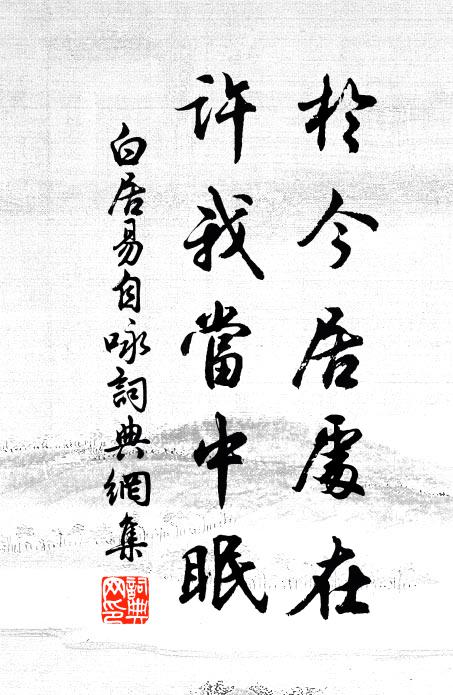 於今居處在
許我當中眠
白居易自咏詞典網集
詞典
网印